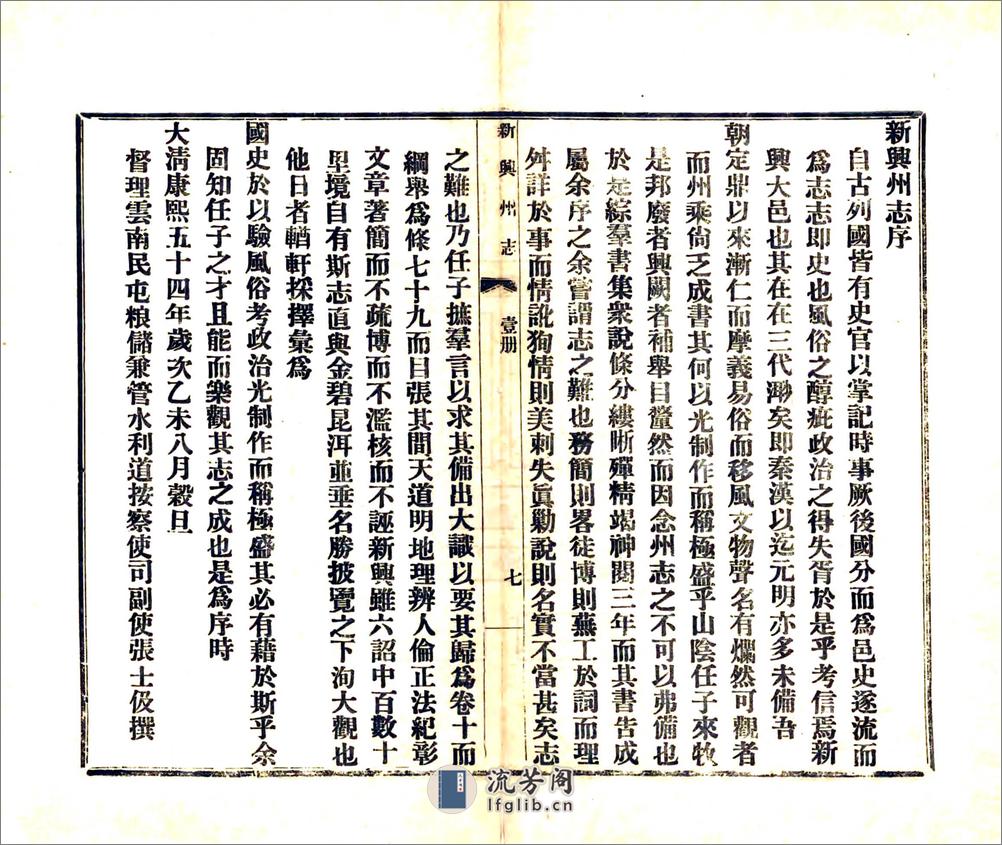 新興州志序
自古列國皆有史官以掌記時事厥後國分而爲邑史遂流而
爲志志即史也風俗之醇疵政治之得失胥於是乎考信焉新
興大邑也其在在三代邈矣即秦漢以迄元明亦多未備吾
朝定鼎以來漸仁而摩義易俗而移風文物聲名有爛然可觀者
而州乘尙乏成書其何以光制作而稱極盛乎山陰任子來牧
是邦廢者興闕者補舉目釐然而因念州志之不可以弗備也
於是綜羣書集衆說條分縷晰殫精竭神閱三年而其書告成
屬余序之余嘗謂志之難也務簡則畧徒博則蕪工於詞而理
舛詳於事而情訛狥情則美刺失眞勦說則名實不當甚矣志
新興州志
壹册
七
之難也乃任子摭羣言以求其備出大識以要其歸爲卷十而
綱舉爲條七十九而目張其間天道明地理辨人倫正法紀彰
文章著簡而不疏博而不濫核而不誣新興雖六詔中百數十
里境自有斯志直與金碧昆洱並垂名勝披覽之下洵大觀也
他日者輶軒採擇彙爲
國史於以驗風俗考政治光制作而稱極盛其必有藉於斯乎余
固知任子之才且能而樂觀其志之成也是爲序時
大淸康熙五十四年歲次乙未八月穀旦
督理雲南民屯粮儲兼管水利道按察使司副使張士伋撰
流芳阁
lfglib.cn